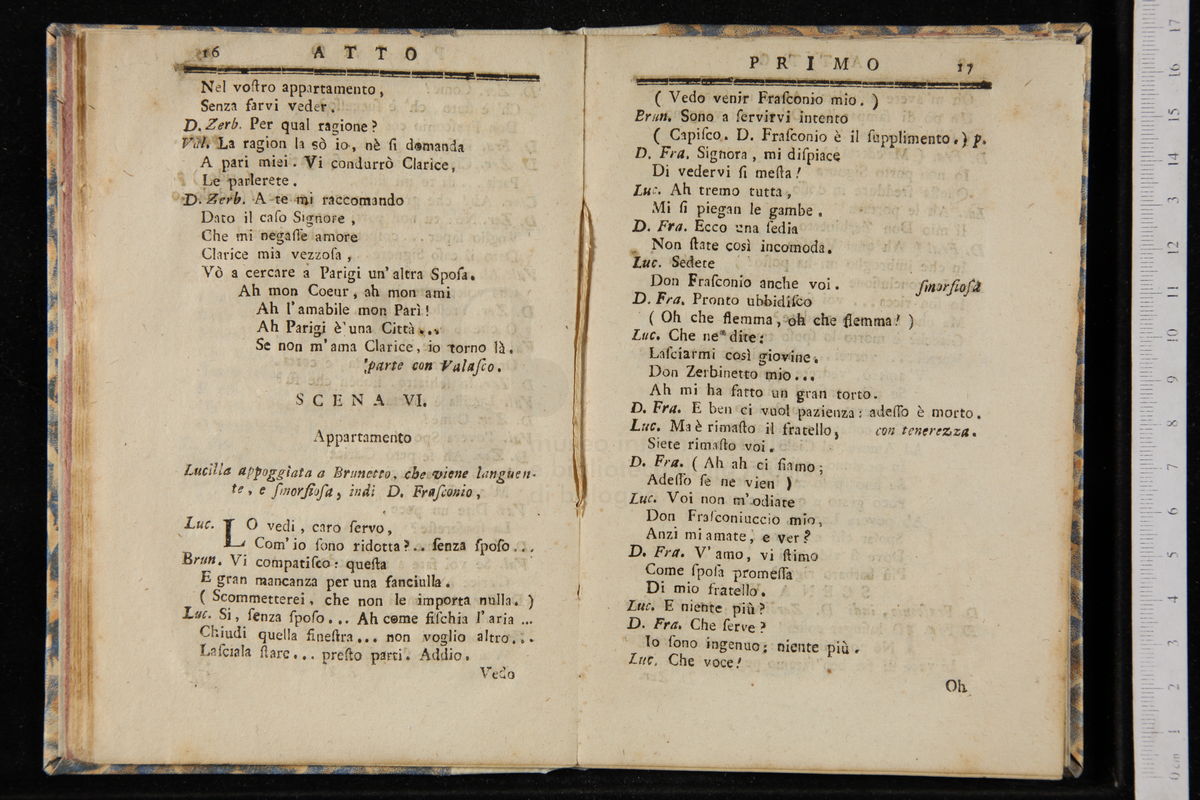 16 ATTO
Nel voſtro appartamento,
Senza farvi veder.
D. Zerb. Per qual ragione?
Val. La ragion la sò io, nè ſi domanda
A pari miei. Vi condurrò Clarice,
Le parlerete.
D. Zerb. A te mi raccomando
Dato il caſo Signore,
Che mi negaſſe amore
Clarice mia vezzoſa,
Vò a cercare a Parigi un' altra Spoſa.
Ah mon Coeur, ah mon ami
Ah l'amabile mon Parì!
Ah Parigi è una Città...
Se non m'ama Clarice, io torno là.
parte con Valaſco.
SCENA VI.
Appartamento
Lucilla appoggiata a Brunetto, che viene languen-
te, e ſmorfioſa, indi D. Fraſconio,
Luc. LO vedi, caro ſervo,
Com' io ſono ridotta?.. ſenza ſpoſo...
Brun. Vi compatiſco: queſta
E gran mancanza per una fanciulla.
( Scommetterei, che non le importa nulla. )
Luc. Si, ſenza ſpoſo... Ah come fiſchia l'aria ...
Chiudi quella fineſtra... non voglio altro...
Laſciala ſtare... preſto parti. Addio.
Vedo
PRIMO 17
( Vedo venir Fraſconio mio. )
Brun. Sono a ſervirvi intento
( Capiſco. D. Fraſconio è il ſupplimento. ) p.
D. Fra. Signora, mi diſpiace
Di vedervi ſi meſta!
Luc. Ah tremo tutta,
Mi ſi piegan le gambe.
D. Fra. Ecco una ſedia
Non ſtate così incomoda.
Luc. Sedete
Don Fraſconio anche voi. ſmorfioſa
D. Fra. Pronto ubbidiſco
( Oh che flemma, oh che flemma! )
Luc. Che ne dite:
Laſciarmi così giovine.
Don Zerbinetto mio...
Ah mi ha fatto un gran torto.
D. Fra. E ben ci vuol pazienza: adeſſo è morto.
Luc. Ma è rimaſto il fratello, con tenerezza.
Siete rimaſto voi.
D. Fra. ( Ah ah ci ſiamo;
Adeſſo ſe ne vien )
Luc. Voi non m'odiate
Don Fraſconiuccio mio,
Anzi mi amate, e ver?
D. Fra. V' amo, vi ſtimo
Come ſpoſa promeſſa
Di mio fratello.
Luc. E niente più?
D. Fra. Che ſerve?
Io ſono ingenuo; niente più.
Luc. Che voce!
Oh